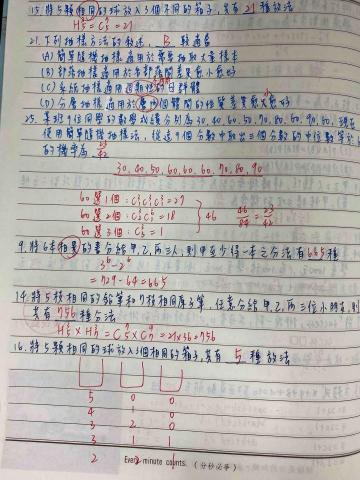 15. 將5顆相同的球放入3個不同的箱子，共有21種放法
H³₅ = C⁷₅ = 21
21. 下列抽樣方法的敘述，B 較適合
(A) 簡單隨機抽樣適用於
(B) 部落抽樣適用於各部落間差異愈小愈好
(C) 系統抽樣適用週期性的母群體
(D) 分層抽樣適用於 個體間的性質差異愈大愈好
25. 某班9位同學的數學成績分別為30,40,50,60,60,60,70,80,90，現在
使用簡單隨機抽樣法，從這9個分數中取出三個分數的中位數等於60
的機率為 23/42
30,40,50,60,60,60,70,80,90
60選1個：C³₁C³₁C³₁=27
60選2個：C³₂C⁶₁=18
60選3個：C³₃ = 1
46
46/84 = 23/42
9. 將6本相異的書分給甲、乙、丙三人，則甲至少得一本之分法有665種
3⁶-2⁶
= 729-64=665
14. 將5枝相同的鉛筆和7枝相同原子筆，任意分給甲、乙、丙三位小朋友，則
共有756種分法
H³₅ × H³₇ = C⁷₅ × C⁹₇ = 21×36=756
16. 將5顆相同的球放入3個相同的箱子，共有5種放法
5 0 0
4 1 0
3 2 0
3 1 1
2 2 1
Every minute counts. （分秒必爭）